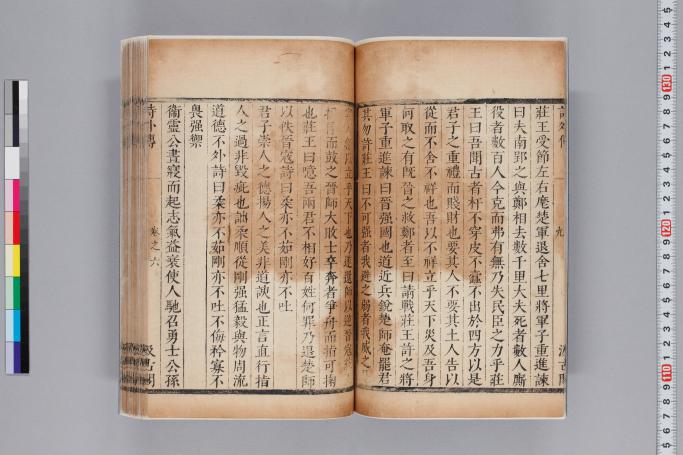 詩外傳 九 汲古閣
莊王受節左右麾楚軍退舍七里將軍子重進諫
曰夫南郢之與鄭相去數千里大夫死者數人廝
役者數百人今克而弗有無乃失民臣之力乎莊
王曰吾聞古者杅不穿皮不蠹不出於四方以是
君子之重禮而賤財也要其人不要其土人告以
從而不舍不祥也吾以不祥立乎天下災及吾身
何取之有旣晉之救鄭者至曰請戰莊王許之將
軍子重進諫曰晉强國也道近兵銳楚師奄罷君
其勿許莊王曰不可强者我避之弱者我威之
以立乎天下也乃遂還師以逆晉寇
而鼓之晉師大敗士卒奔者爭舟而指可掬
也莊王曰噫吾兩君不相好百姓何罪乃退楚師
以佚晉寇詩曰柔亦不茹剛亦不吐
君子崇人之德揚人之美非道諛也正言直行指
人之過非毀疵也詘柔順從剛强猛毅與物周流
道德不外詩曰柔亦不茹剛亦不吐不侮矜寡不
畏强禦
衞靈公晝寢而起志氣益衰使人馳召勇士公孫
詩外傳 卷之六 汲古閣
130
120
110